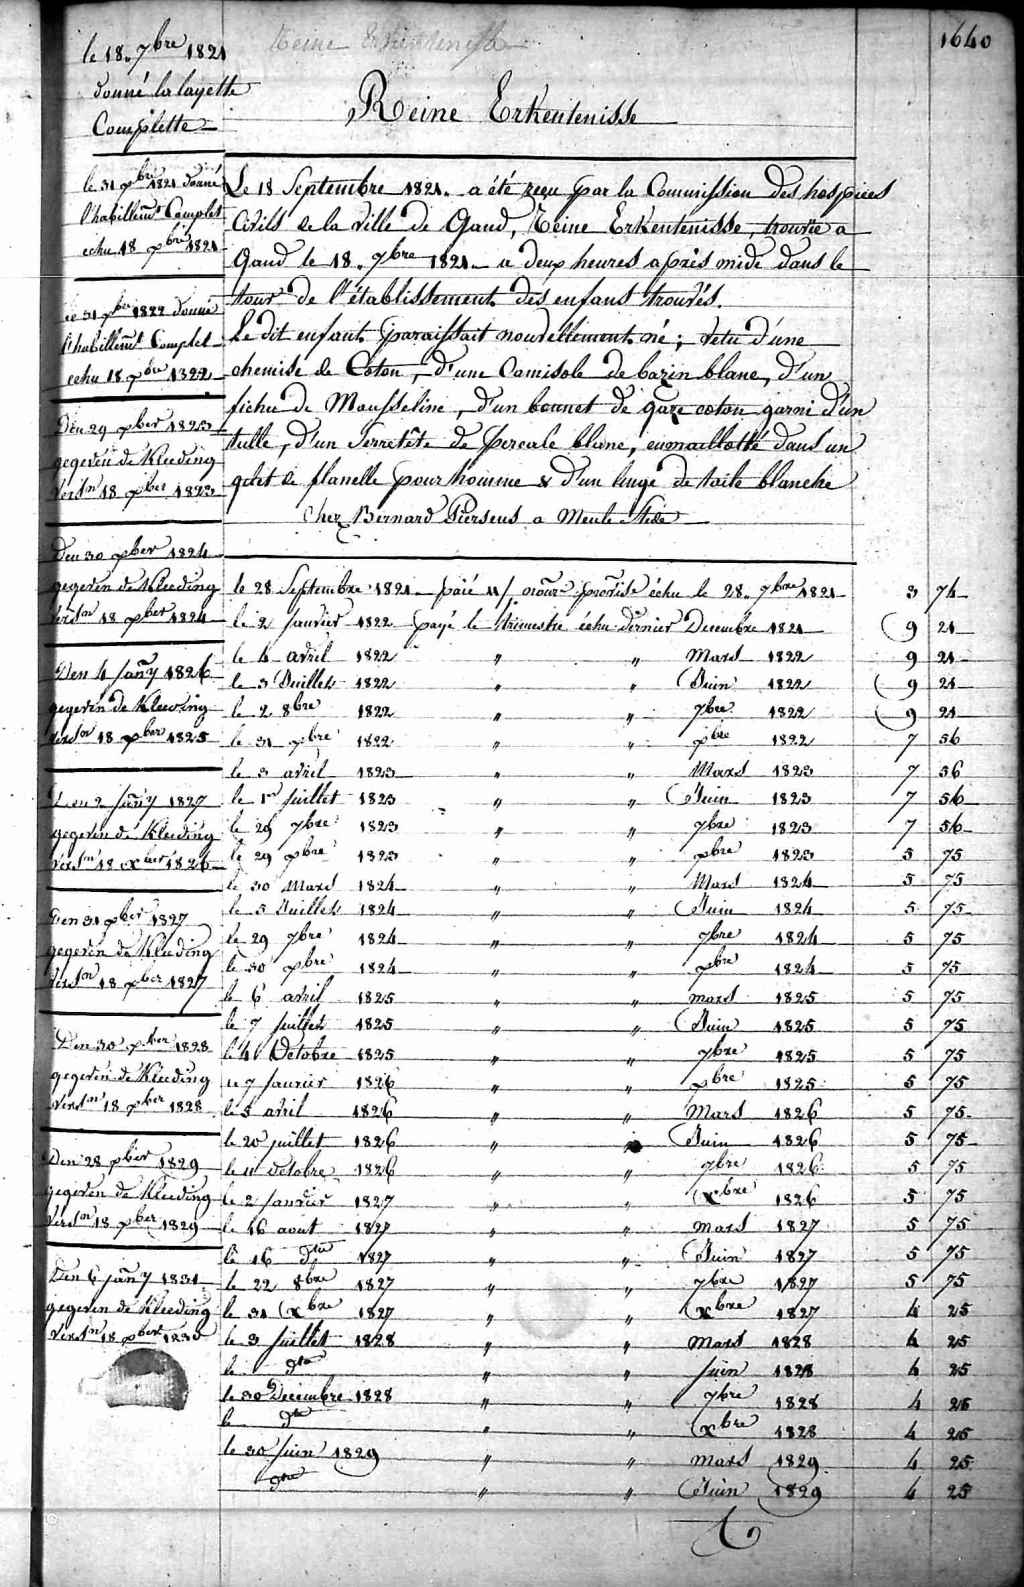 1640
Reine Erkentenisse
le 18. 7bre 1821
donné la layette
Complette
Reine Erkentenisse
le 31 xbre 1821 donné
l'habillemt Complet
echu 18 xbre 1821
le 31 xber 1822 donné
l'habillemt Complet
echu 18 xbre 1822
Den 29 xber 1823
gegeven de Kleeding
versn 18 xber 1823
Den 30 xber 1824
gegeven de Kleeding
versn 18 xber 1824
Den 4 Jany 1826
gegeven de Kleeding
versn 18 xber 1825
Den 2 Jany 1827
gegeven de Kleeding
versn 18 xber 1826
Den 31 xber 1827
gegeven de Kleeding
versn 18 xber 1827
Den 30 xber 1828
gegeven de Kleeding
versn 18 xber 1828
Den 28 xber 1829
gegeven de Kleeding
versn 18 xber 1829
Den 6 Jany 1831
gegeven de Kleeding
versn 18 xber 1830
Le 18 Septembre 1821. a été reçu par la Commission des hospices
Civils de la ville de Gand, Reine Erkentenisse, trouvée a
Gand le 18. 7bre 1821. a deux heures après midi dans le
tour de l'établissement des enfans trouvés.
Le dit enfant paraissait nouvellement né; vetu d'une
chemise de Coton, d'une Camisole de bazin blanc, d'un
fichu de Mousseline, d'un bonnet de gaze coton garni d'un
tulle, d'un Serretête de percale blanc, enmaillotté dans un
gilet de flanelle pour homme & d'un linge de toile blanche
Chez Bernard Piersens a Meule Stede
le 28 Septembre 1821 payé 11/ nourr provise échu le 28. 7bre 1821 3 74
le 2 janvier 1822 payé le trimestre échu dernier Decembre 1821 9 21
le 4 avril 1822 " " Mars 1822 9 21
le 3 Juillet 1822 " " Juin 1822 9 21
le 2 8bre 1822 " " 7bre 1822 9 21
le 31 xbre 1822 " " xbre 1822 7 56
le 3 avril 1823 " " Mars 1823 7 56
le 1r juillet 1823 " " Juin 1823 7 56
le 29 7bre 1823 " " 7bre 1823 7 56
le 29 xbre 1823 " " xbre 1823 5 75
le 30 Mars 1824 " " Mars 1824 5 75
le 5 Juillet 1824 " " Juin 1824 5 75
le 29 7bre 1824 " " 7bre 1824 5 75
le 30 xbre 1824 " " xbre 1824 5 75
le 6 avril 1825 " " mars 1825 5 75
le 7 juillet 1825 " " Juin 1825 5 75
le 4 Octobre 1825 " " 7bre 1825 5 75
le 7 janvier 1826 " " xbre 1825 5 75
le 5 avril 1826 " " Mars 1826 5 75
le 20 juillet 1826 " " Juin 1826 5 75
le 11 octobre 1826 " " 7bre 1826 5 75
le 2 janvier 1827 " " Xbre 1826 5 75
le 16 aout 1827 " " mars 1827 5 75
le 16 dto 1827 " " Juin 1827 5 75
le 22 8bre 1827 " " 7bre 1827 5 75
le 31 Xbre 1827 " " Xbre 1827 4 25
le 3 Juillet 1828 " " Mars 1828 4 25
le dto " " juin 1828 4 25
le 30 Decembre 1828 " " 7bre 1828 4 25
le dto " " Xbre 1828 4 25
le 30 juin 1829 " " mars 1829 4 25
dto " " Juin 1829 4 25